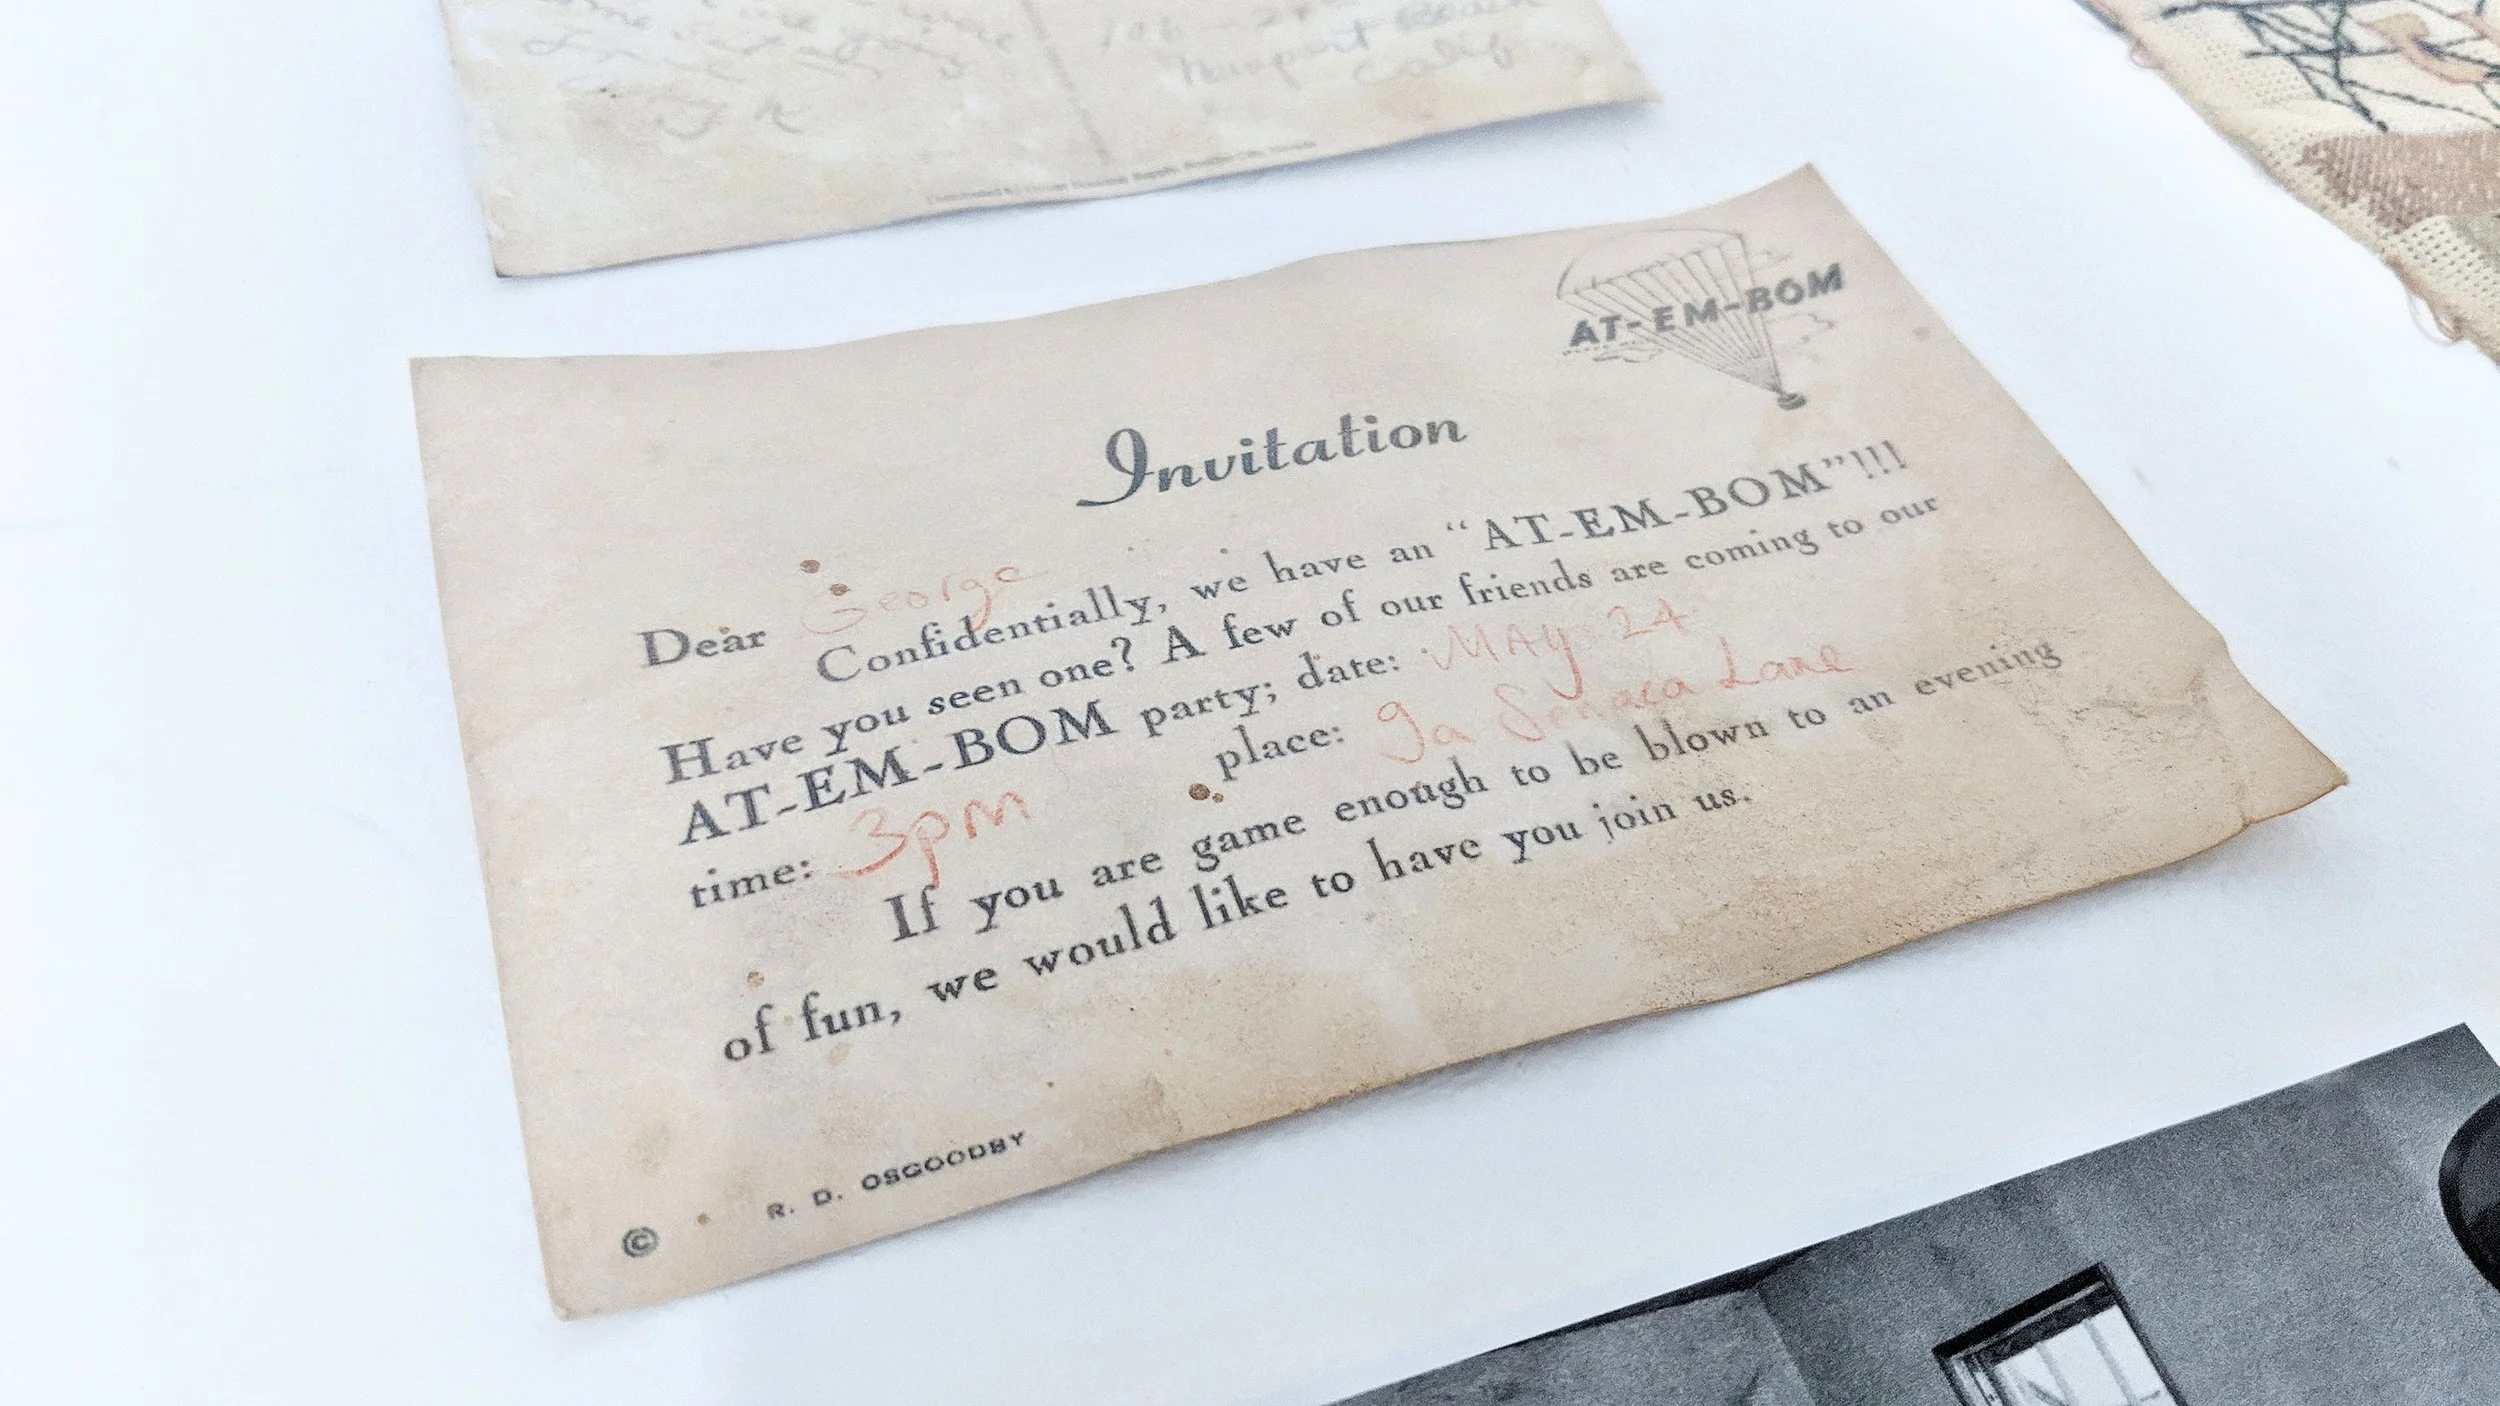 106
Newport Beach
Calif
AT-EM-BOM
Invitation
Dear George
Confidentially, we have an “AT-EM-BOM”!!!
Have you seen one? A few of our friends are coming to our
AT-EM-BOM party; date: MAY 24
time: 3pm place: 9a Lane
If you are game enough to be blown to an evening
of fun, we would like to have you join us.
© R. D. OSGOODBY